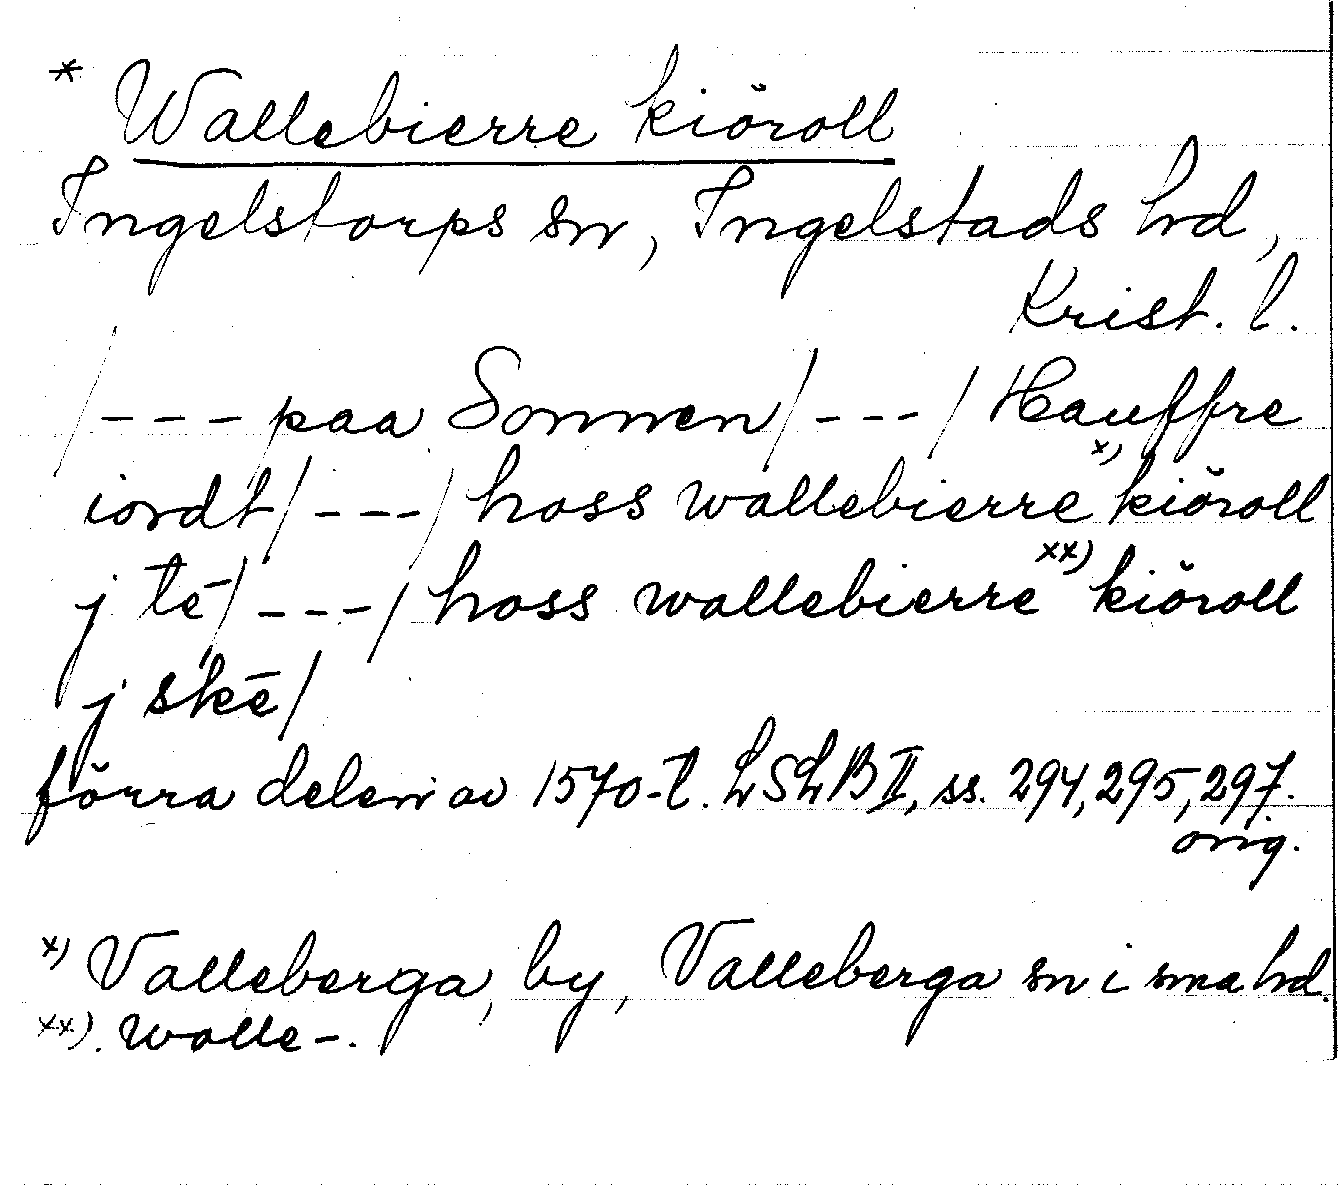 * Wallebierre kiöroll
Ingelstorps sn, Ingelstads hd,
Krist. l.
/--- paa Sonnen/---/ Hauffre
iordt/---/ hoss wallebierre x) kiöroll
j tē/---/ hoss wallebierre xx) kiöroll
j skē/
förra delen av 1570-t. LSLB II, ss. 294, 295, 297.
orig.
x) Valleberga, by, Valleberga sn i sma hd.
xx). Walle-.